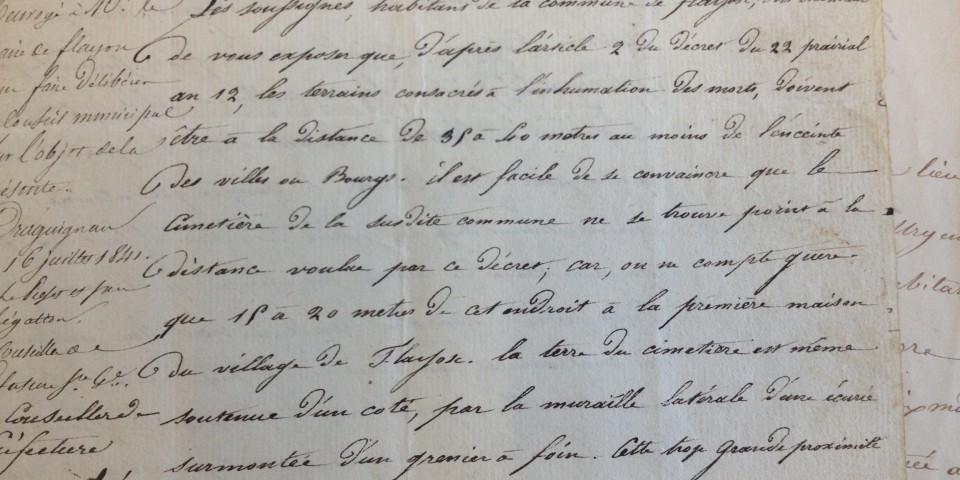 Les soussignés, habitans de la commune de flayosc,
de vous exposer que, d'après l'article 2 du décret du 22 prairial
an 12, les terrains consacrés à l'inhumation des morts, doivent
être à la distance de 35 à 40 metres au moins de l'enceinte
des villes ou Bourgs. il est facile de se convaincre que le
cimetière de la susdite commune ne se trouve point à la
distance voulue par ce décret; car, on ne compte guere
que 15 à 20 metres de cet endroit à la première maison
du village de Flayosc. la terre du cimetière est même
soutenue d'un coté, par la muraille latérale d'une écurie
surmontée d'un grenier à foin. Cette trop grande proximité
de flayosc
faire délibérer
conseil municipal
l'objet de la
Draguignan
16 juillet 1841.
Conseiller de
préfecture
lieu